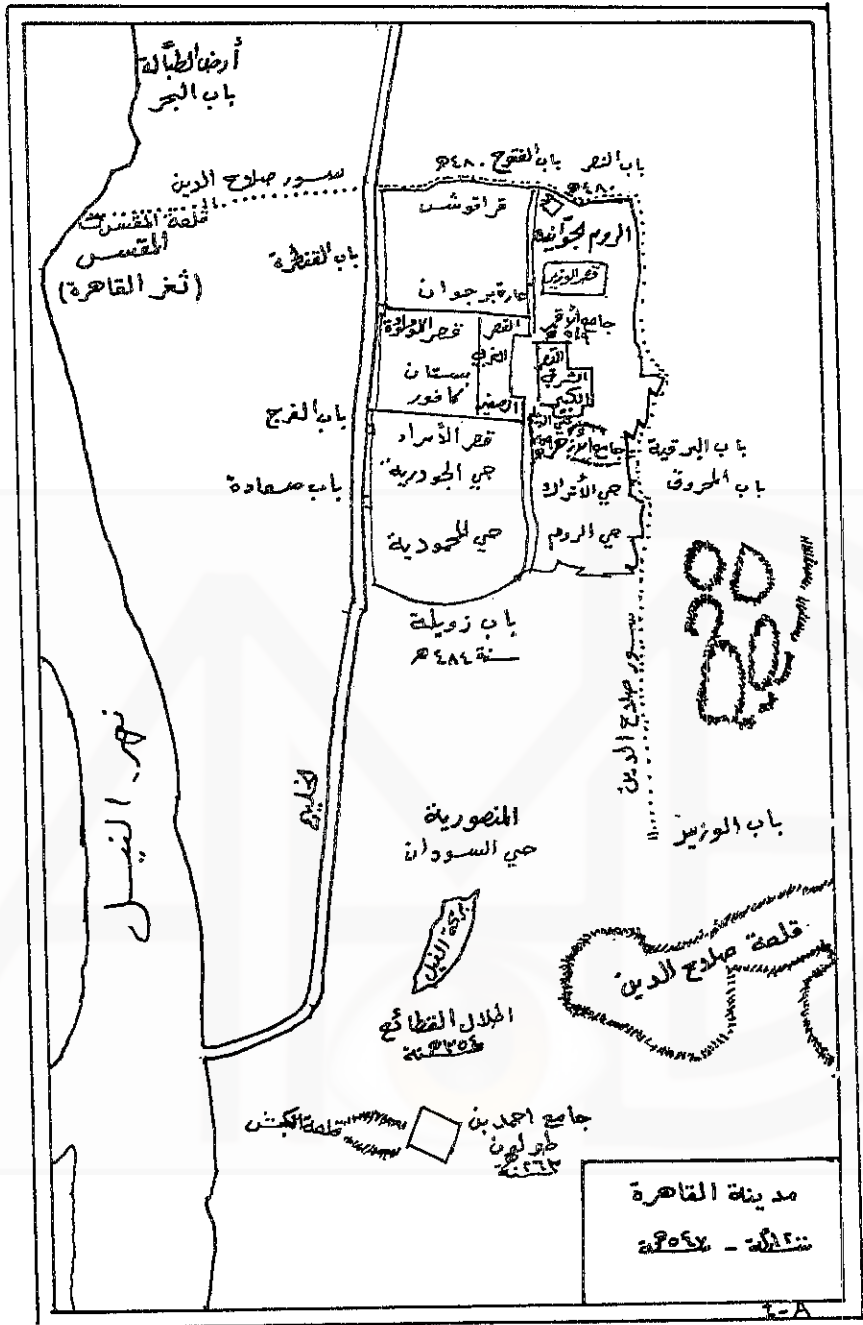 أرض الطبَّالة
باب البحر
باب النصر
باب الفتوح ٤٨٠ هـ
٤٨٠ هـ
سور صلاح الدين
قلعة المقس
المقس
(ثغر القاهرة)
باب القنطرة
قراقوش
الروم الجوَّانية
قصر الوزير
حارة برجوان
جامع الأقمر
قصر اللؤلؤة
القصر
الغربي
الصغير
بستان
كافور
القصر
الشرقي
الكبير
باب الفرج
قصر الأمراء
جامع الأزهر
باب البرقية
باب المحروق
باب سعادة
حي الجودرية
حي الأتراك
حي المحمودية
حي الروم
باب زويلة
سنة ٤٨٤ هـ
سور صلاح الدين
نهر النيل
الخليج
المنصورية
حي السودان
باب الوزير
بركة الفيل
قلعة صلاح الدين
اطلال القطائع
سنة ٢٥٤ هـ
قلعة الكبش
جامع احمد بن
طولون
سنة ٢٦٣ هـ
مدينة القاهرة